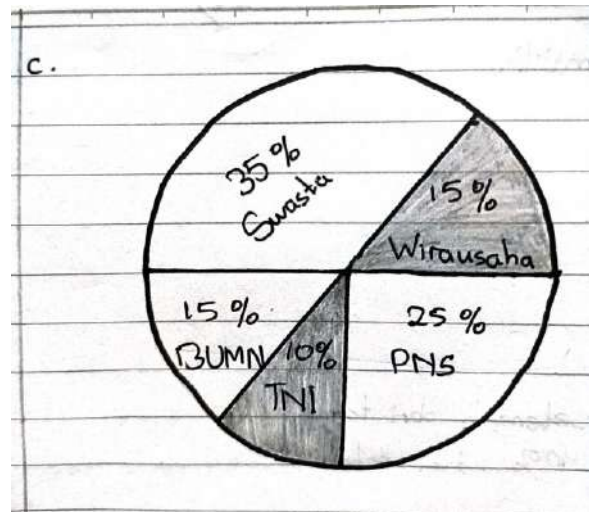 c.
35%
Swasta
15%
Wirausaha
15%
BUMN
10%
TNI
25%
PNS